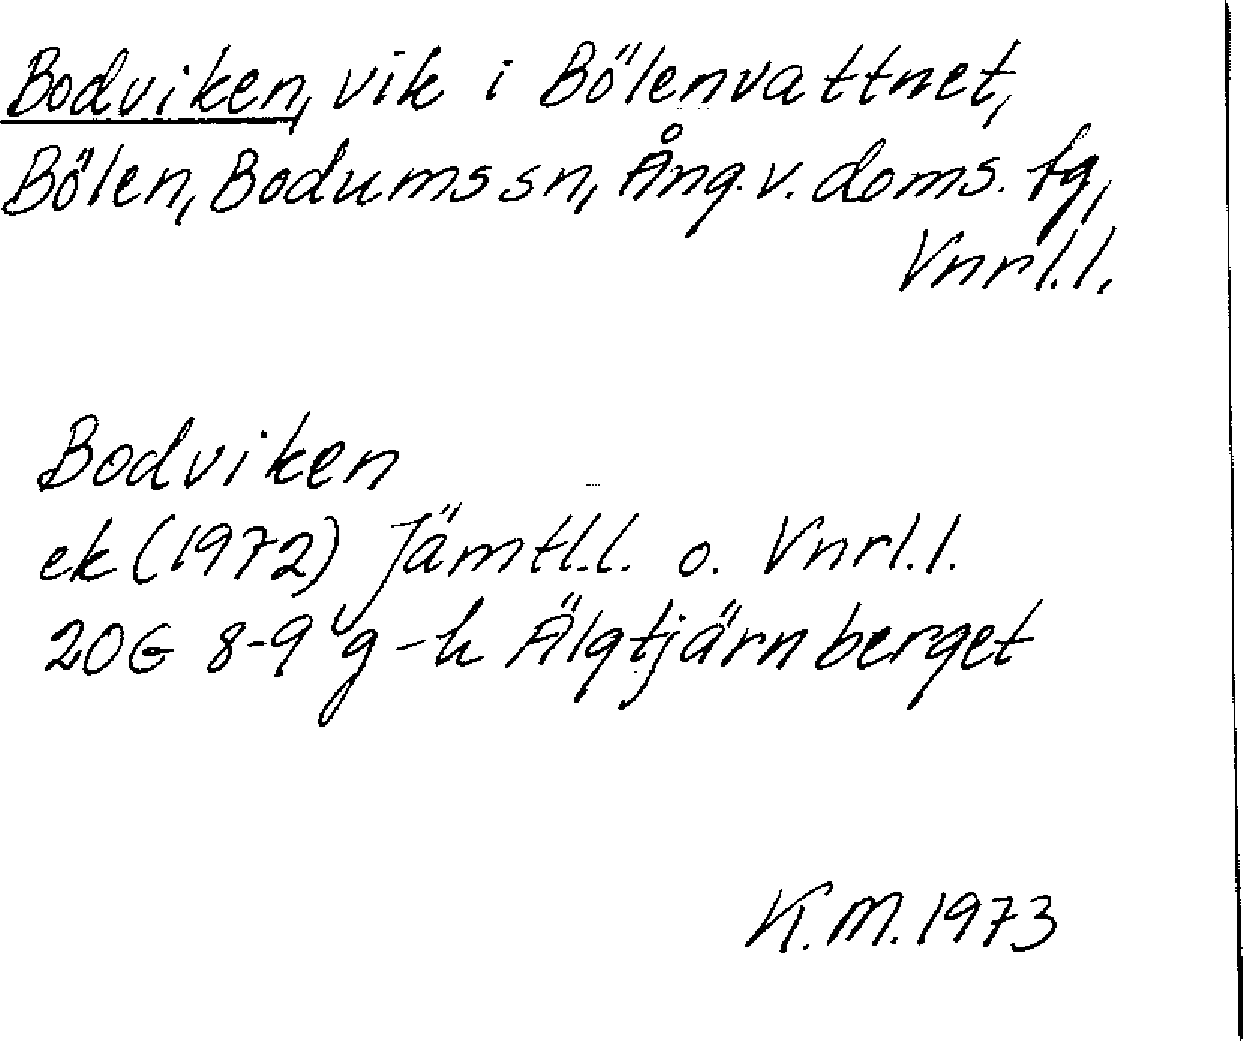 Bodviken, vik i Bölenvattnet,
Bölen, Bodums sn, Ång. v. doms. fg,
Vnrl.l.
Bodviken
ek (1972) Jämtl.l. o. Vnrl.l.
20G 8-9 g-h Älgtjärnberget
K.M. 1973